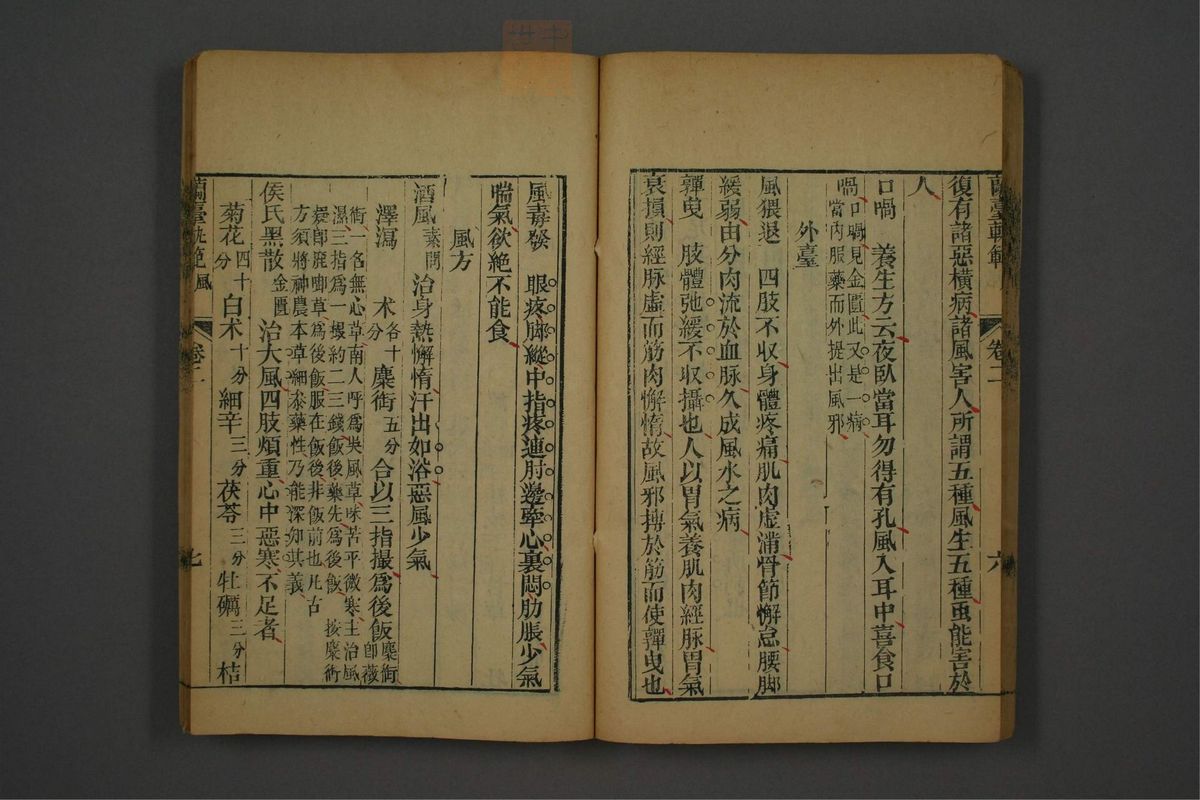 復有諸惡橫病諸風害人所謂五種風生五種䖝能害於
人
口喎 養生方云夜臥當耳勿得有孔風入耳中喜食口
喎口喎見金匱此又是一病
當內服藥而外提出風邪
外臺
風猥退 四肢不收身體疼痛肌肉虛滿骨節懈怠腰脚
緩弱由分肉流於血脉久成風水之病
嚲曳 肢體弛緩不收攝也人以胃氣養肌肉經脉胃氣
衰損則經脉虛而筋肉懈惰故風邪搏於筋而使嚲曳也
蘭臺軌範
卷二
六
風毒發 眼疼脚縱中指疼連肘邊牽心裏悶肋脹少氣
喘氣欲絕不能食
風方
酒風素問 治身熱懈惰汗出如浴惡風少氣
澤瀉 术各十分 麋銜五分 合以三指撮爲後飯麋銜即薇
銜一名無心草南人呼爲吳風草味苦平微寒主治風
濕三指爲一撮約二三錢飯後藥先爲後飯 按麋銜
卽鹿啣草爲後飯服在飯後非飯前也凡古
方須將神農本草細叅藥性乃能深知其義
侯氏黑散金匱 治大風四肢煩重心中惡寒不足者
菊花四十分 白术十分 細辛三分 茯苓三分 牡礪三分 桔
蘭臺軌範 風
卷二
七